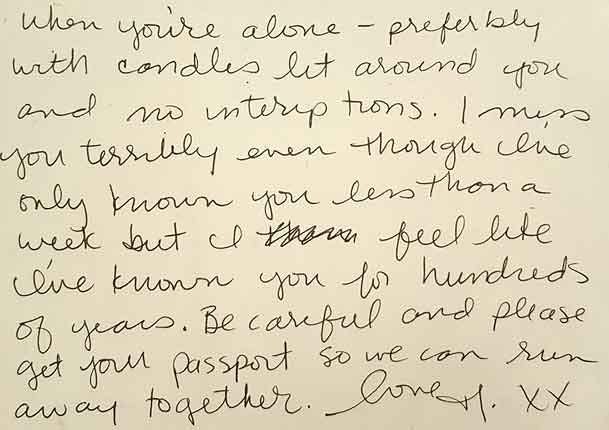 when you're alone – preferbly
with candles lit around you
and no interiptions. I miss
you terribly even though I've
only known you less than a
week but I feel like
I've known you for hundreds
of years. Be careful and please
get your passport so we can run
away together. Love, H. XX